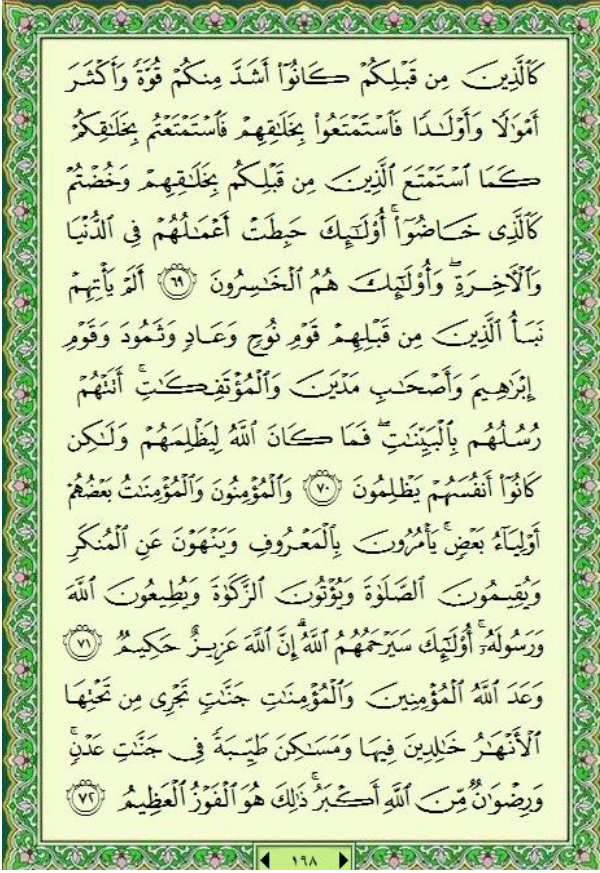 كَٱلَّذِينَ مِن قَبْلِكُمْ كَانُوٓا۟ أَشَدَّ مِنكُمْ قُوَّةً وَأَكْثَرَ
أَمْوَٰلًا وَأَوْلَـٰدًا فَٱسْتَمْتَعُوا۟ بِخَلَـٰقِهِمْ فَٱسْتَمْتَعْتُم بِخَلَـٰقِكُمْ
كَمَا ٱسْتَمْتَعَ ٱلَّذِينَ مِن قَبْلِكُم بِخَلَـٰقِهِمْ وَخُضْتُمْ
كَٱلَّذِى خَاضُوٓا۟ ۚ أُو۟لَـٰٓئِكَ حَبِطَتْ أَعْمَـٰلُهُمْ فِى ٱلدُّنْيَا
وَٱلْـَٔاخِرَةِ ۖ وَأُو۟لَـٰٓئِكَ هُمُ ٱلْخَـٰسِرُونَ ٦٩ أَلَمْ يَأْتِهِمْ
نَبَأُ ٱلَّذِينَ مِن قَبْلِهِمْ قَوْمِ نُوحٍ وَعَادٍ وَثَمُودَ وَقَوْمِ
إِبْرَٰهِيمَ وَأَصْحَـٰبِ مَدْيَنَ وَٱلْمُؤْتَفِكَـٰتِ ۚ أَتَتْهُمْ
رُسُلُهُم بِٱلْبَيِّنَـٰتِ ۖ فَمَا كَانَ ٱللَّهُ لِيَظْلِمَهُمْ وَلَـٰكِن
كَانُوٓا۟ أَنفُسَهُمْ يَظْلِمُونَ ٧٠ وَٱلْمُؤْمِنُونَ وَٱلْمُؤْمِنَـٰتُ بَعْضُهُمْ
أَوْلِيَآءُ بَعْضٍ ۚ يَأْمُرُونَ بِٱلْمَعْرُوفِ وَيَنْهَوْنَ عَنِ ٱلْمُنكَرِ
وَيُقِيمُونَ ٱلصَّلَوٰةَ وَيُؤْتُونَ ٱلزَّكَوٰةَ وَيُطِيعُونَ ٱللَّهَ
وَرَسُولَهُۥٓ ۚ أُو۟لَـٰٓئِكَ سَيَرْحَمُهُمُ ٱللَّهُ ۗ إِنَّ ٱللَّهَ عَزِيزٌ حَكِيمٌ ٧١
وَعَدَ ٱللَّهُ ٱلْمُؤْمِنِينَ وَٱلْمُؤْمِنَـٰتِ جَنَّـٰتٍ تَجْرِى مِن تَحْتِهَا
ٱلْأَنْهَـٰرُ خَـٰلِدِينَ فِيهَا وَمَسَـٰكِنَ طَيِّبَةً فِى جَنَّـٰتِ عَدْنٍ ۚ
وَرِضْوَٰنٌ مِّنَ ٱللَّهِ أَكْبَرُ ۚ ذَٰلِكَ هُوَ ٱلْفَوْزُ ٱلْعَظِيمُ ٧٢
١٩٨